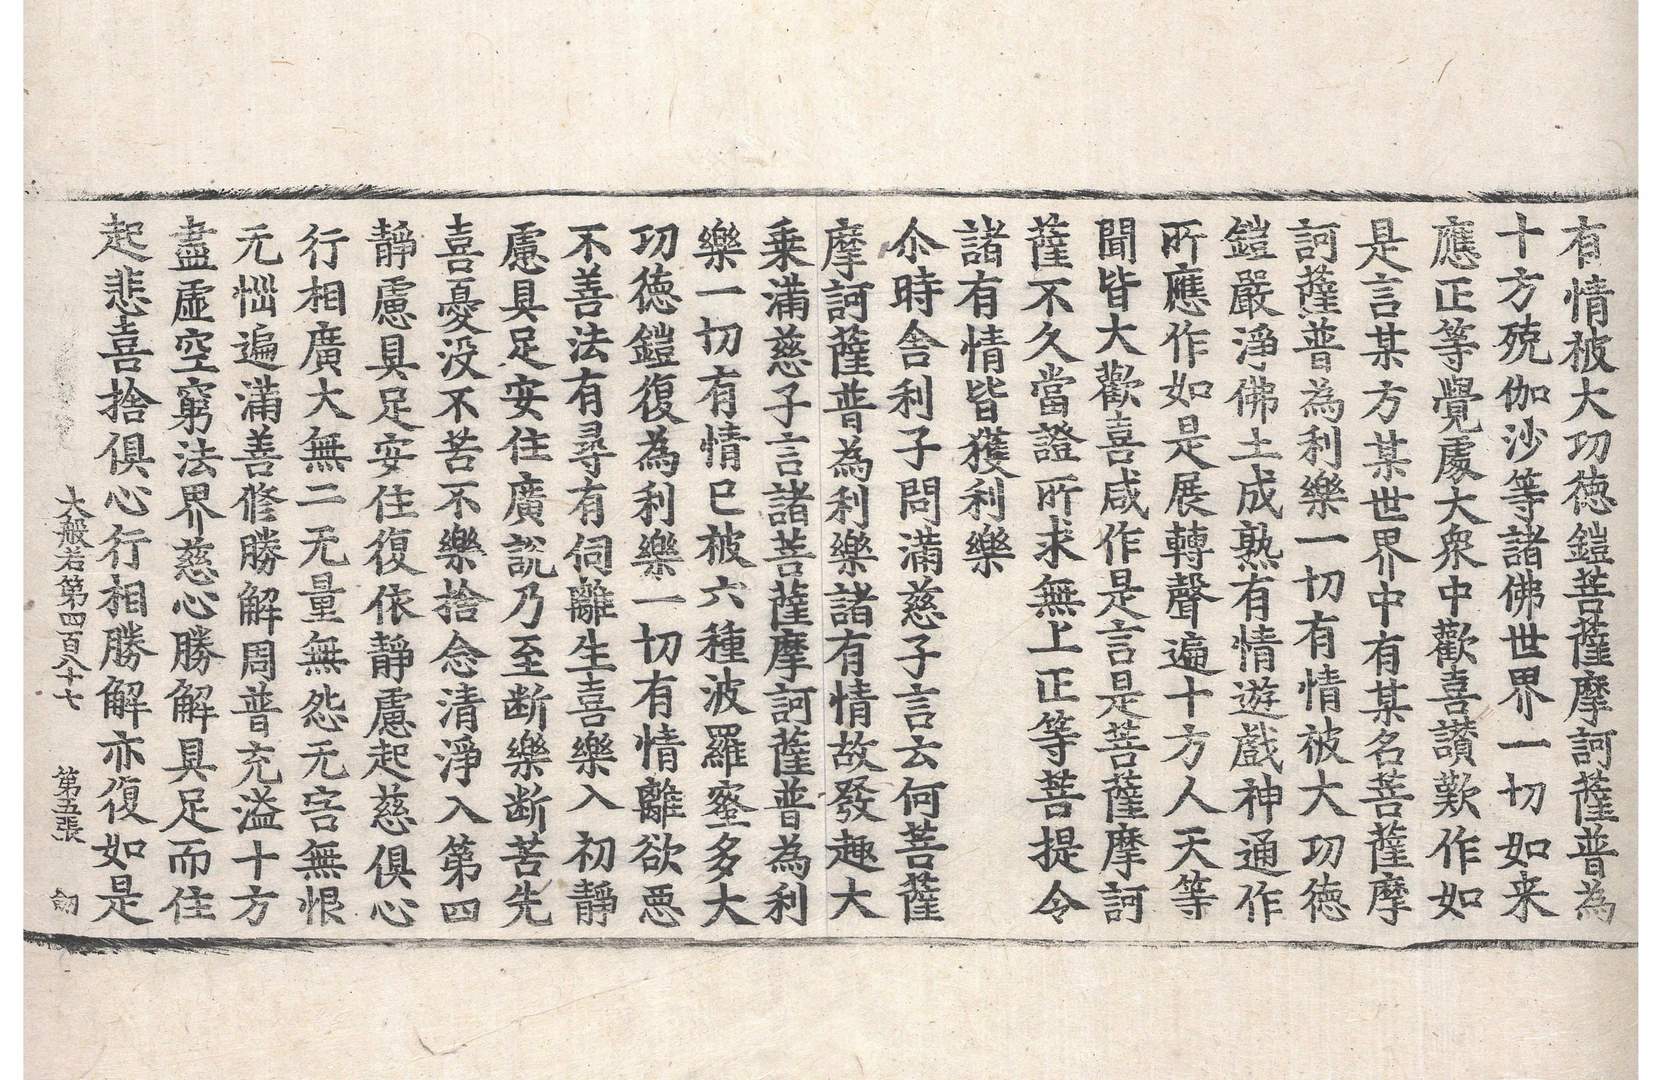 有情被大功德鎧菩薩摩訶薩普為
十方殑伽沙等諸佛世界一切如来
應正等覺處大衆中歡喜讃歎作如
是言某方某世界中有某名菩薩摩
訶薩普為利樂一切有情被大功德
鎧嚴淨佛土成熟有情遊戲神通作
所應作如是展轉聲遍十方人天等
聞皆大歡喜咸作是言是菩薩摩訶
薩不久當證所求無上正等菩提令
諸有情皆獲利樂
尒時舍利子問滿慈子言云何菩薩
摩訶薩普為利樂諸有情故發趣大
乗滿慈子言諸菩薩摩訶薩普為利
樂一切有情已被六種波羅蜜多大
功德鎧復為利樂一切有情離欲惡
不善法有尋有伺離生喜樂入初靜
慮具足安住廣說乃至断樂断苦先
喜憂没不苦不樂捨念清淨入第四
靜慮具足安住復依靜慮起慈俱心
行相廣大無二无量無怨无害無恨
无惱遍滿善修勝解周普充溢十方
盡虛空窮法界慈心勝解具足而住
起悲喜捨俱心行相勝解亦復如是
大般若第四百八十七 第五張 劒